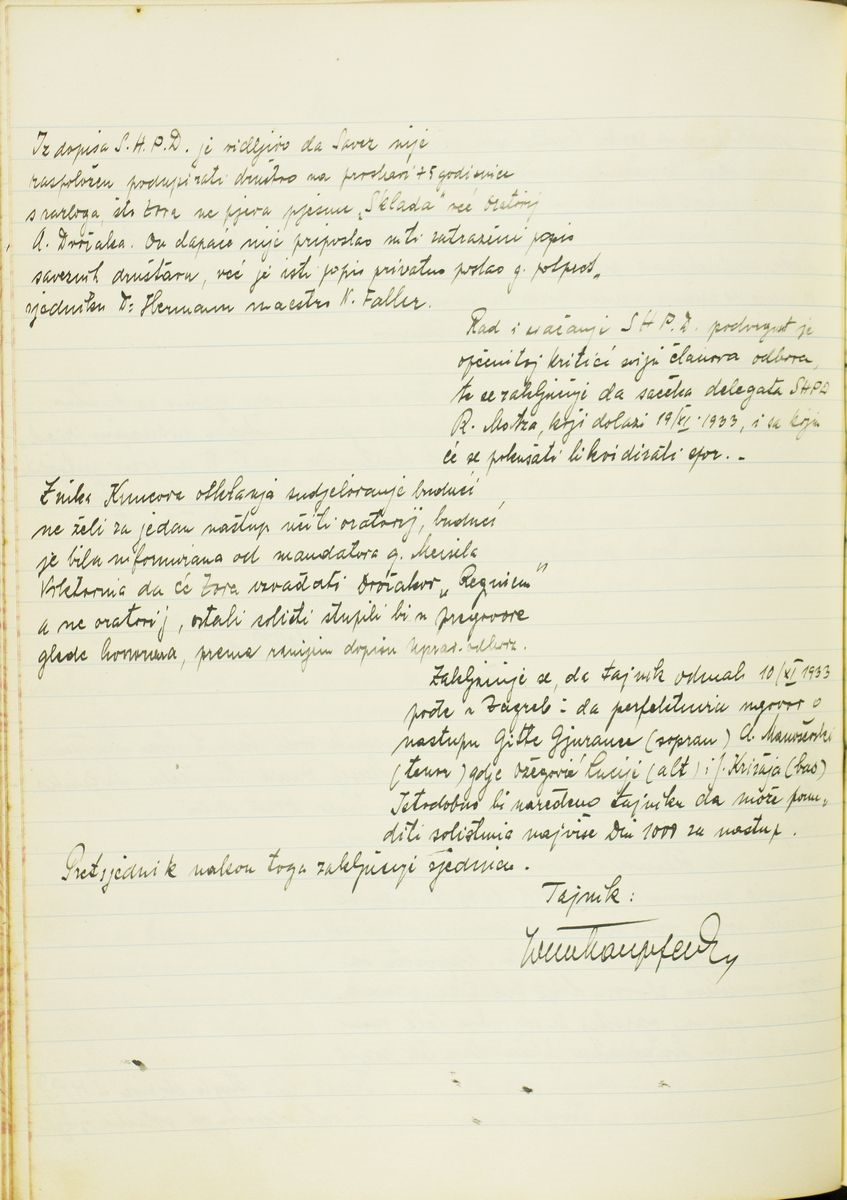 Iz dopisa S.H.P.D. je vidljivo da Savez nije
raspoložen podupirati društvo na proslavi 75 godišnjice
s razloga, što Zora ne pjeva pjesme „Sklada" već Oratorij
A. Dvořaka. On dapače nije priposlao niti zatraženi popis
saveznih društava, već je isti popis privatno poslao g. potpred„
sjedniku Dr Hermann maestro N. Faller.
Rad i svačanje S H P. D. podvrgnut je
općenitoj kritici sviju članova odbora,
te se zaključuje da sačeka delegata SHPD
R. Matza, koji dolazi 19/XI. 1933, i sa kojim
će se pokušati likvidirati spor. -
Zinka Kuncova otklanja sudjelovanje budući
ne želi za jedan nastup učiti oratorij, budući
je bila informirana od mandatora g.
da će Zora izvađati Dvořakov „Requiem"
a ne oratorij, ostali solisti stupili bi u pregovore
glede honorara, prema ranijim dopisu Uprav. odbora.
Zaključuje se, da tajnik odmah 10/XI 1933
pođe u Zagreb i da perfektuira ugovor o
nastupu Gitte Gjuranec (sopran) A.
(tenor) gdje Ožegović Lucije (alt) i J. Križaja (bas)
Istodobno bi naređeno tajniku da može ponu„
diti solistima najviše Din 1000 za nastup.
Pretsjednik nakon toga zaključuje sjednicu.
Tajnik: